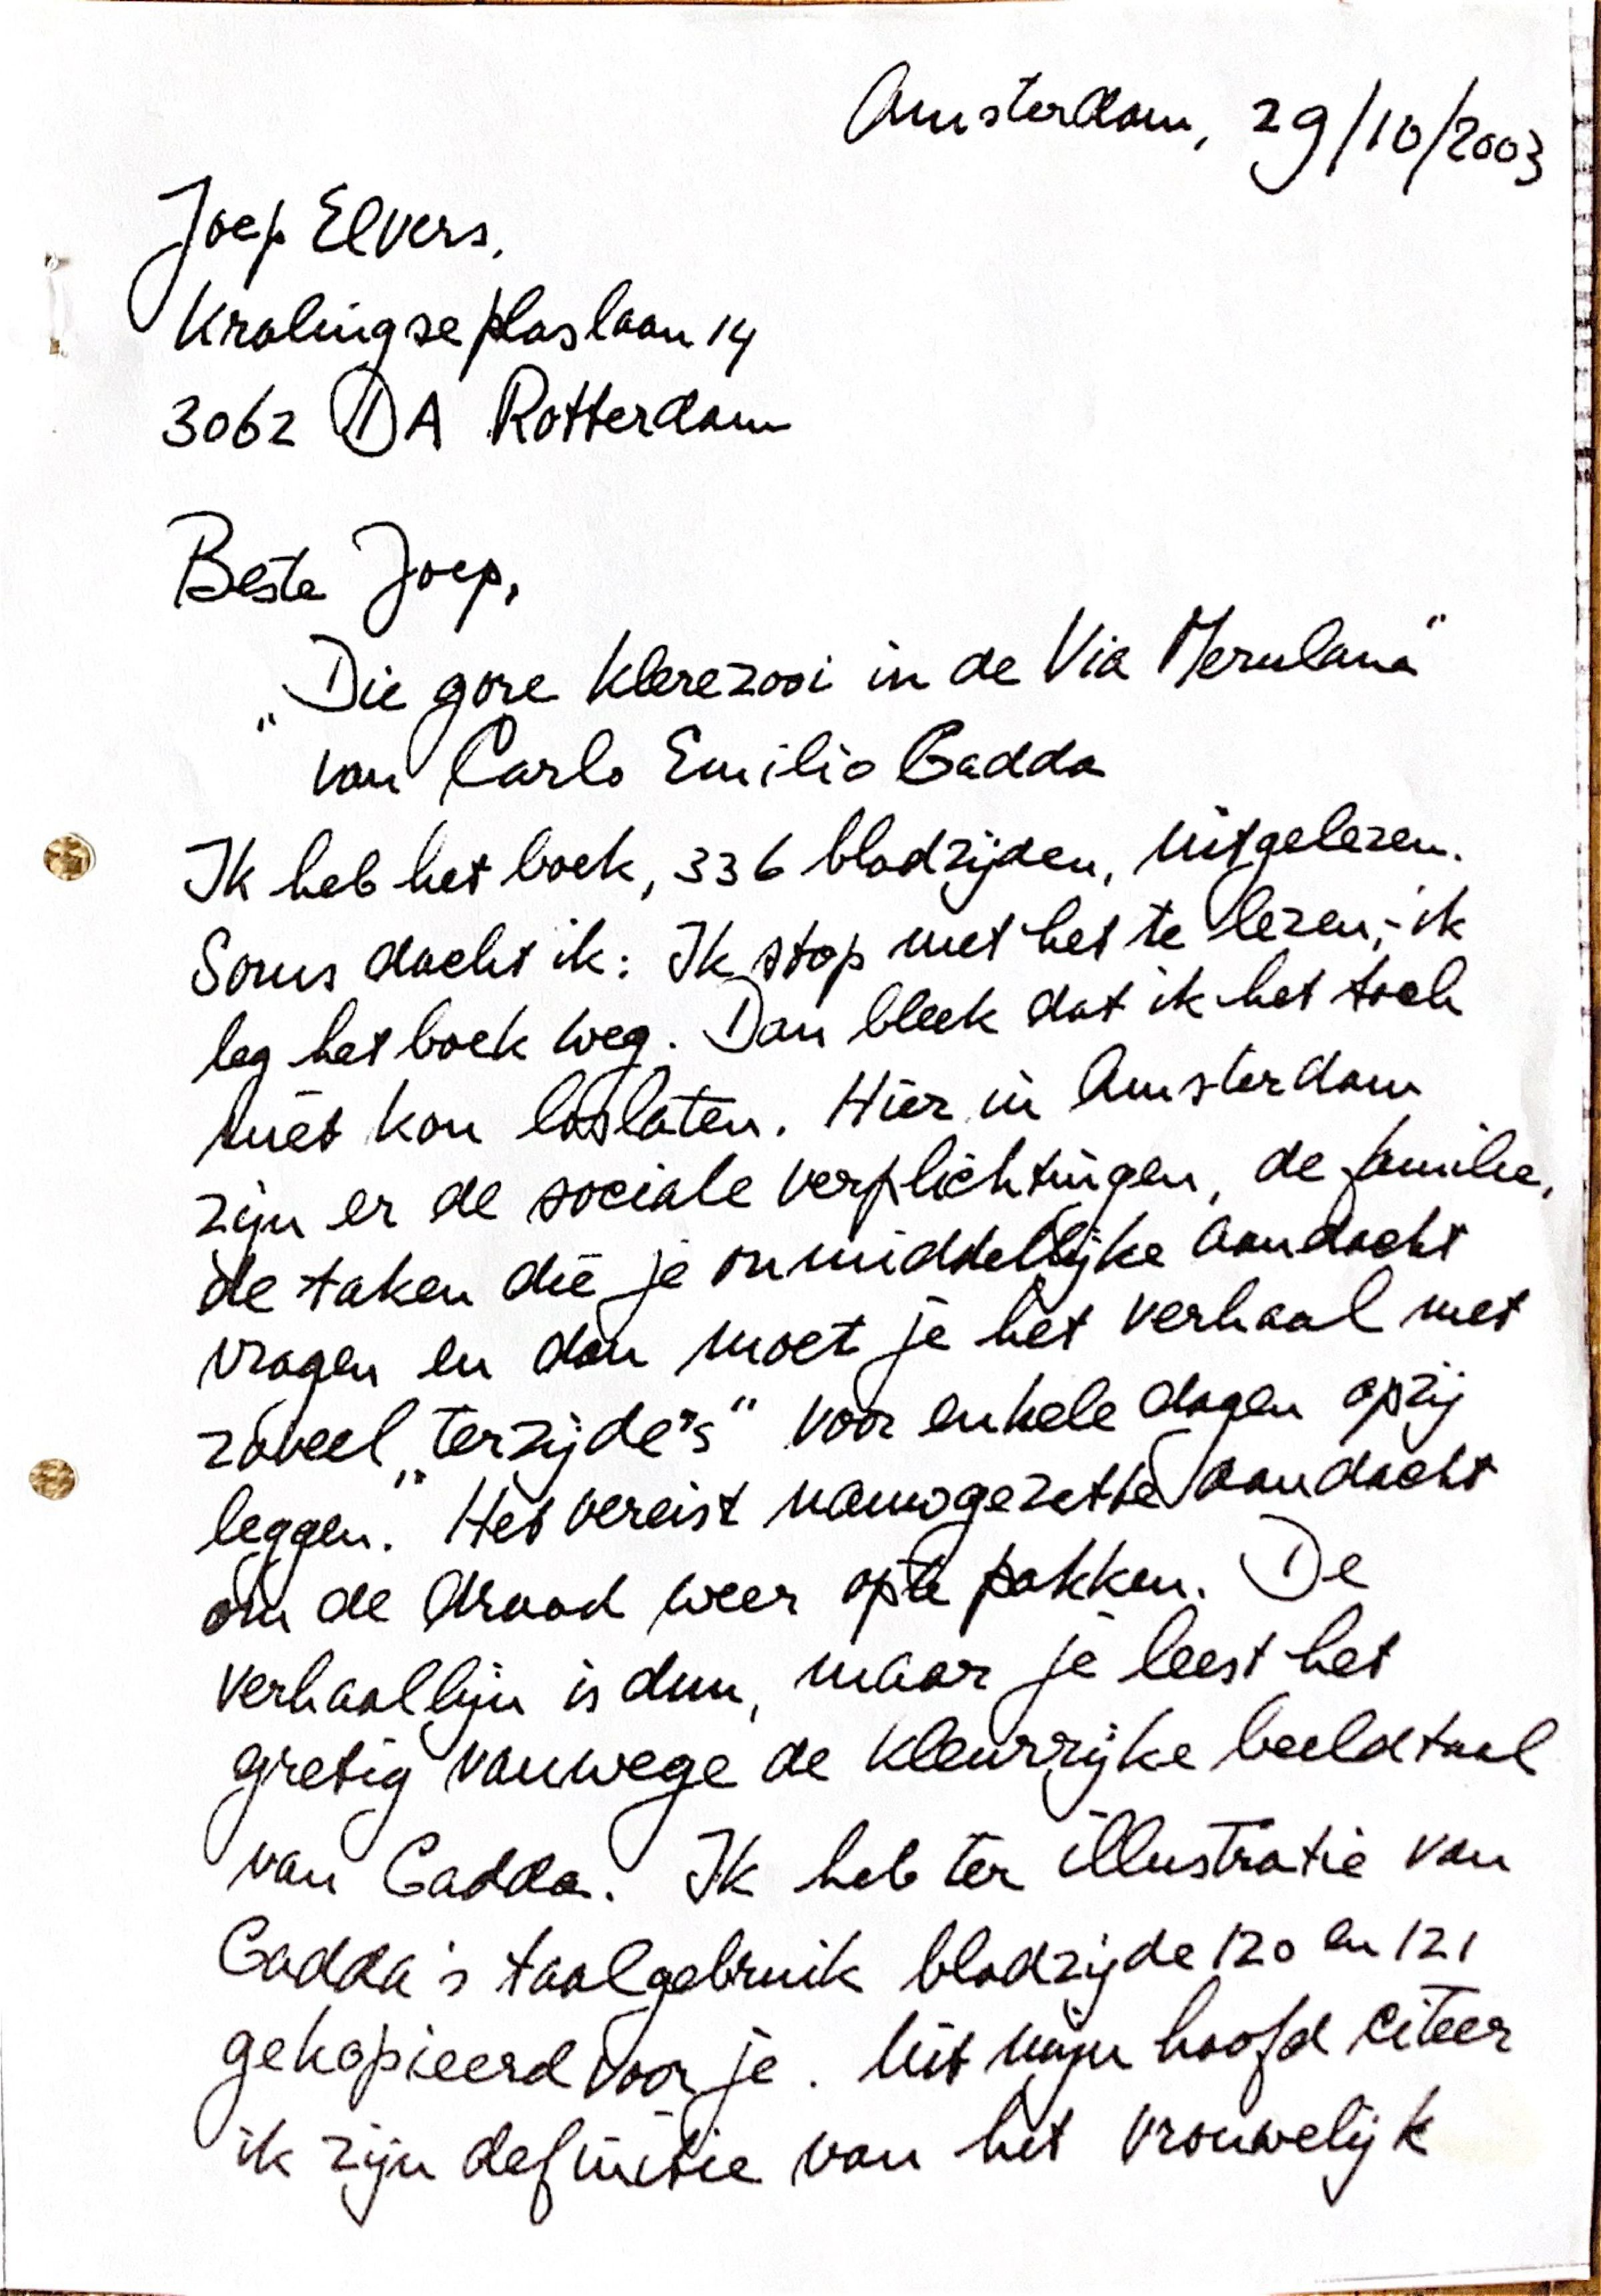 Amsterdam, 29/10/2003
Joep Elvers,
Kralingse plaslaan 14
3062 DA Rotterdam
Beste Joep,
„Die gore klerezooi in de Via Merulana“
van Carlo Emilio Gadda
Ik heb het boek, 336 bladzijden, uitgelezen.
Soms dacht ik: Ik stop met het te lezen,- ik
leg het boek weg. Dan bleek dat ik het toch
niet kon loslaten. Hier in Amsterdam
zijn er de sociale verplichtingen, de familie,
de taken die je onmiddellijke aandacht
vragen en dan moet je het verhaal met
zoveel „terzijde's“ voor enkele dagen opzij
leggen. Het vereist nauwgezette aandacht
om de draad weer op te pakken. De
verhaallijn is dun, maar je leest het
gretig vanwege de kleurrijke beeldtaal
van Gadda. Ik heb ter illustratie van
Gadda's taalgebruik bladzijde 120 en 121
gekopieerd voor je. Uit mijn hoofd citeer
ik zijn definitie van het vrouwelijk